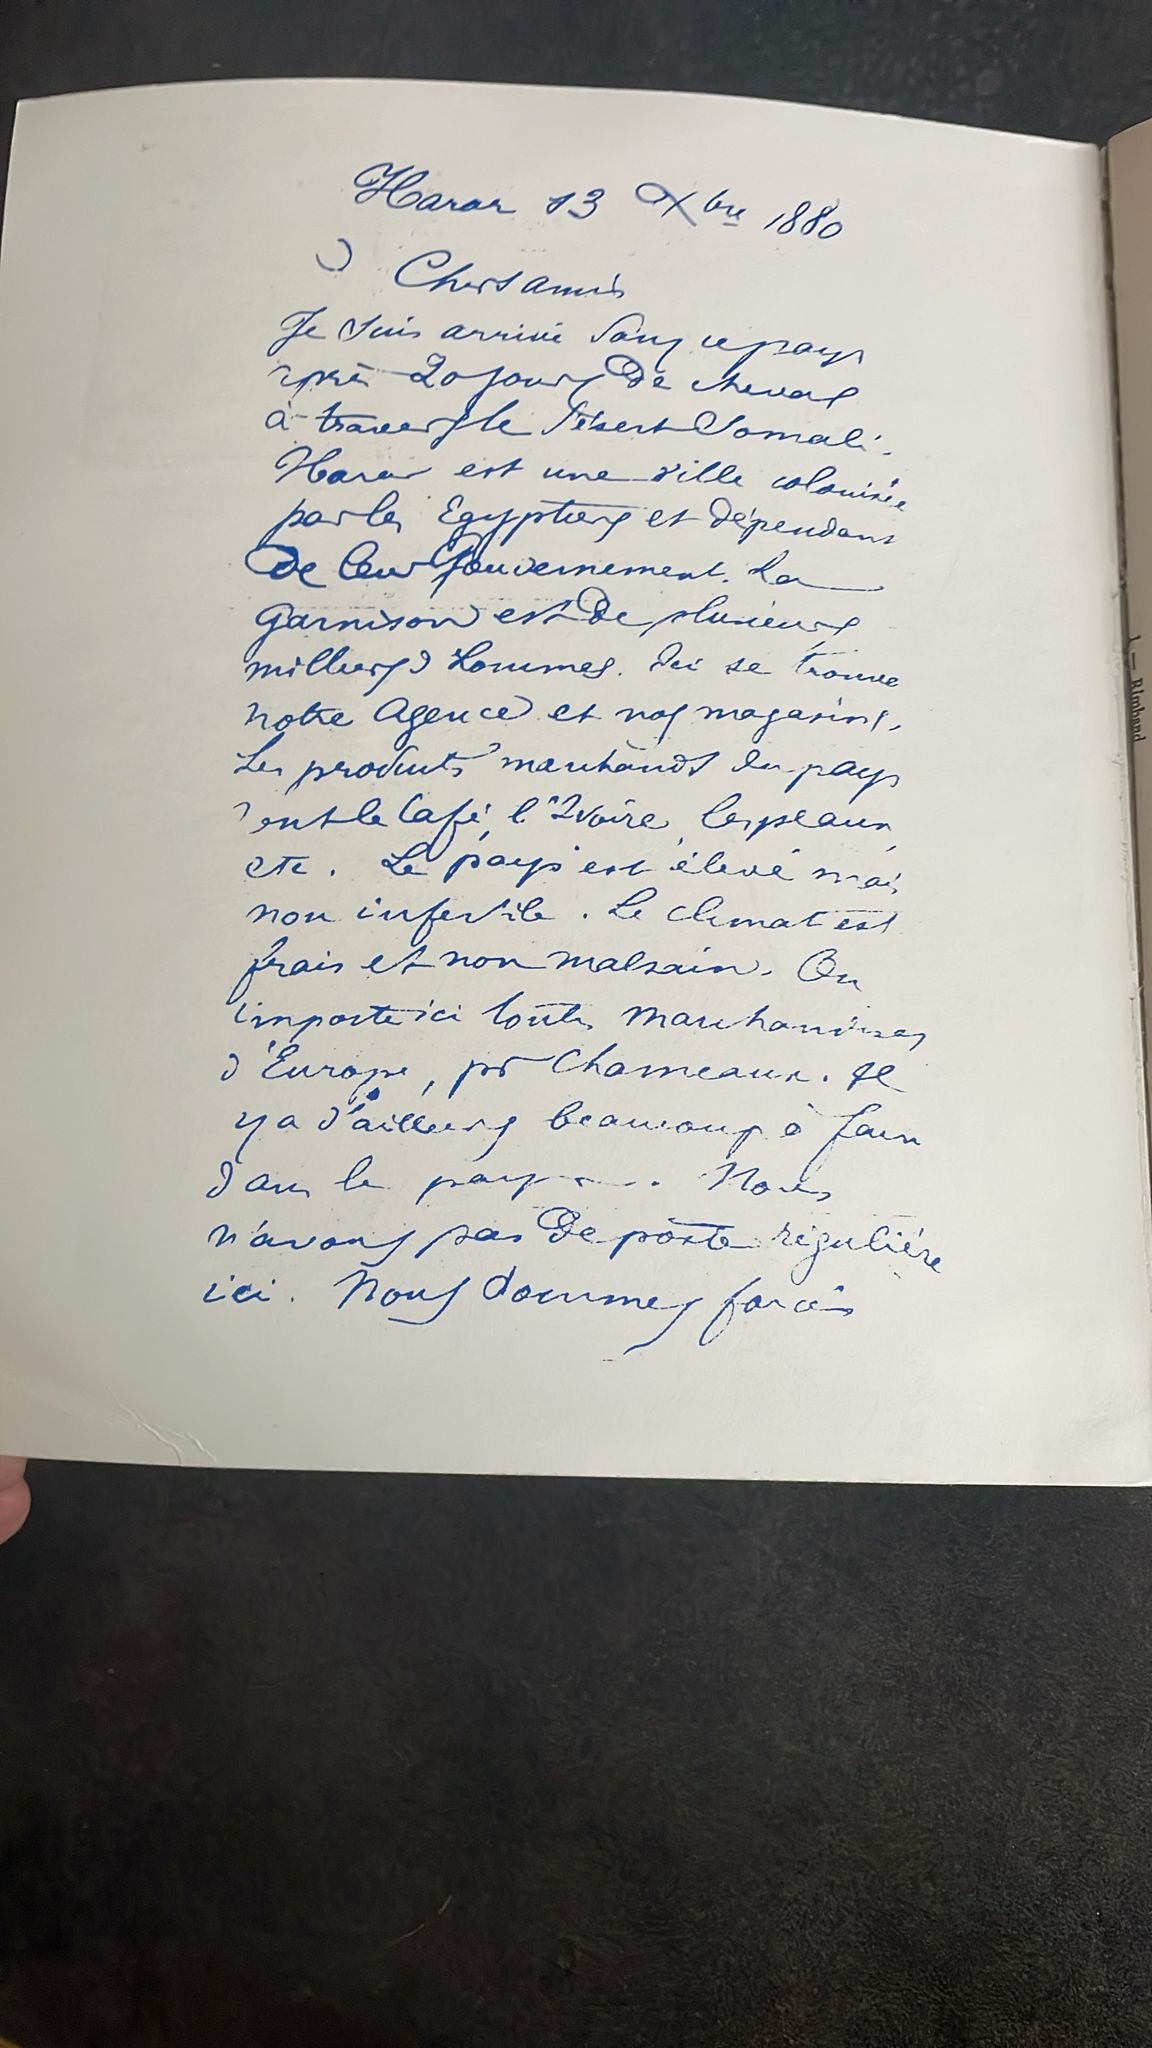 Harar 13 Xbre 1880
Chers amis
Je suis arrivé dans ce pays
après 20 jours de cheval
à travers le désert Somali.
Harar est une ville colonisée
par les Egyptiens et dépendant
de leur gouvernement. La
garnison est de plusieurs
milliers d'hommes. Ici se trouve
notre agence et nos magasins.
Les produits marchands du pays
sont le café, l'ivoire, les peaux,
etc. Le pays est élevé mais
non infertile. Le climat est
frais et non malsain. On
importe ici toutes marchandises
d'Europe, pr chameaux. Il
y a d'ailleurs beaucoup à faire
dans le pays. Nous
n'avons pas de poste régulière
ici. Nous sommes forcés
1 — Rimbaud